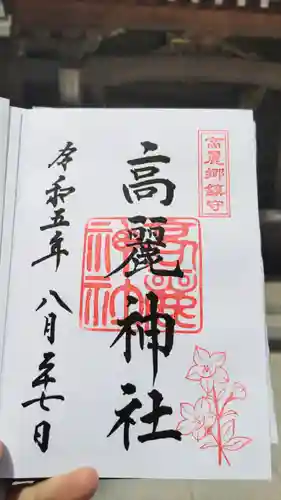 高麗郷鎮守
高麗神社
高麗
神社
令和五年 八月二十七日